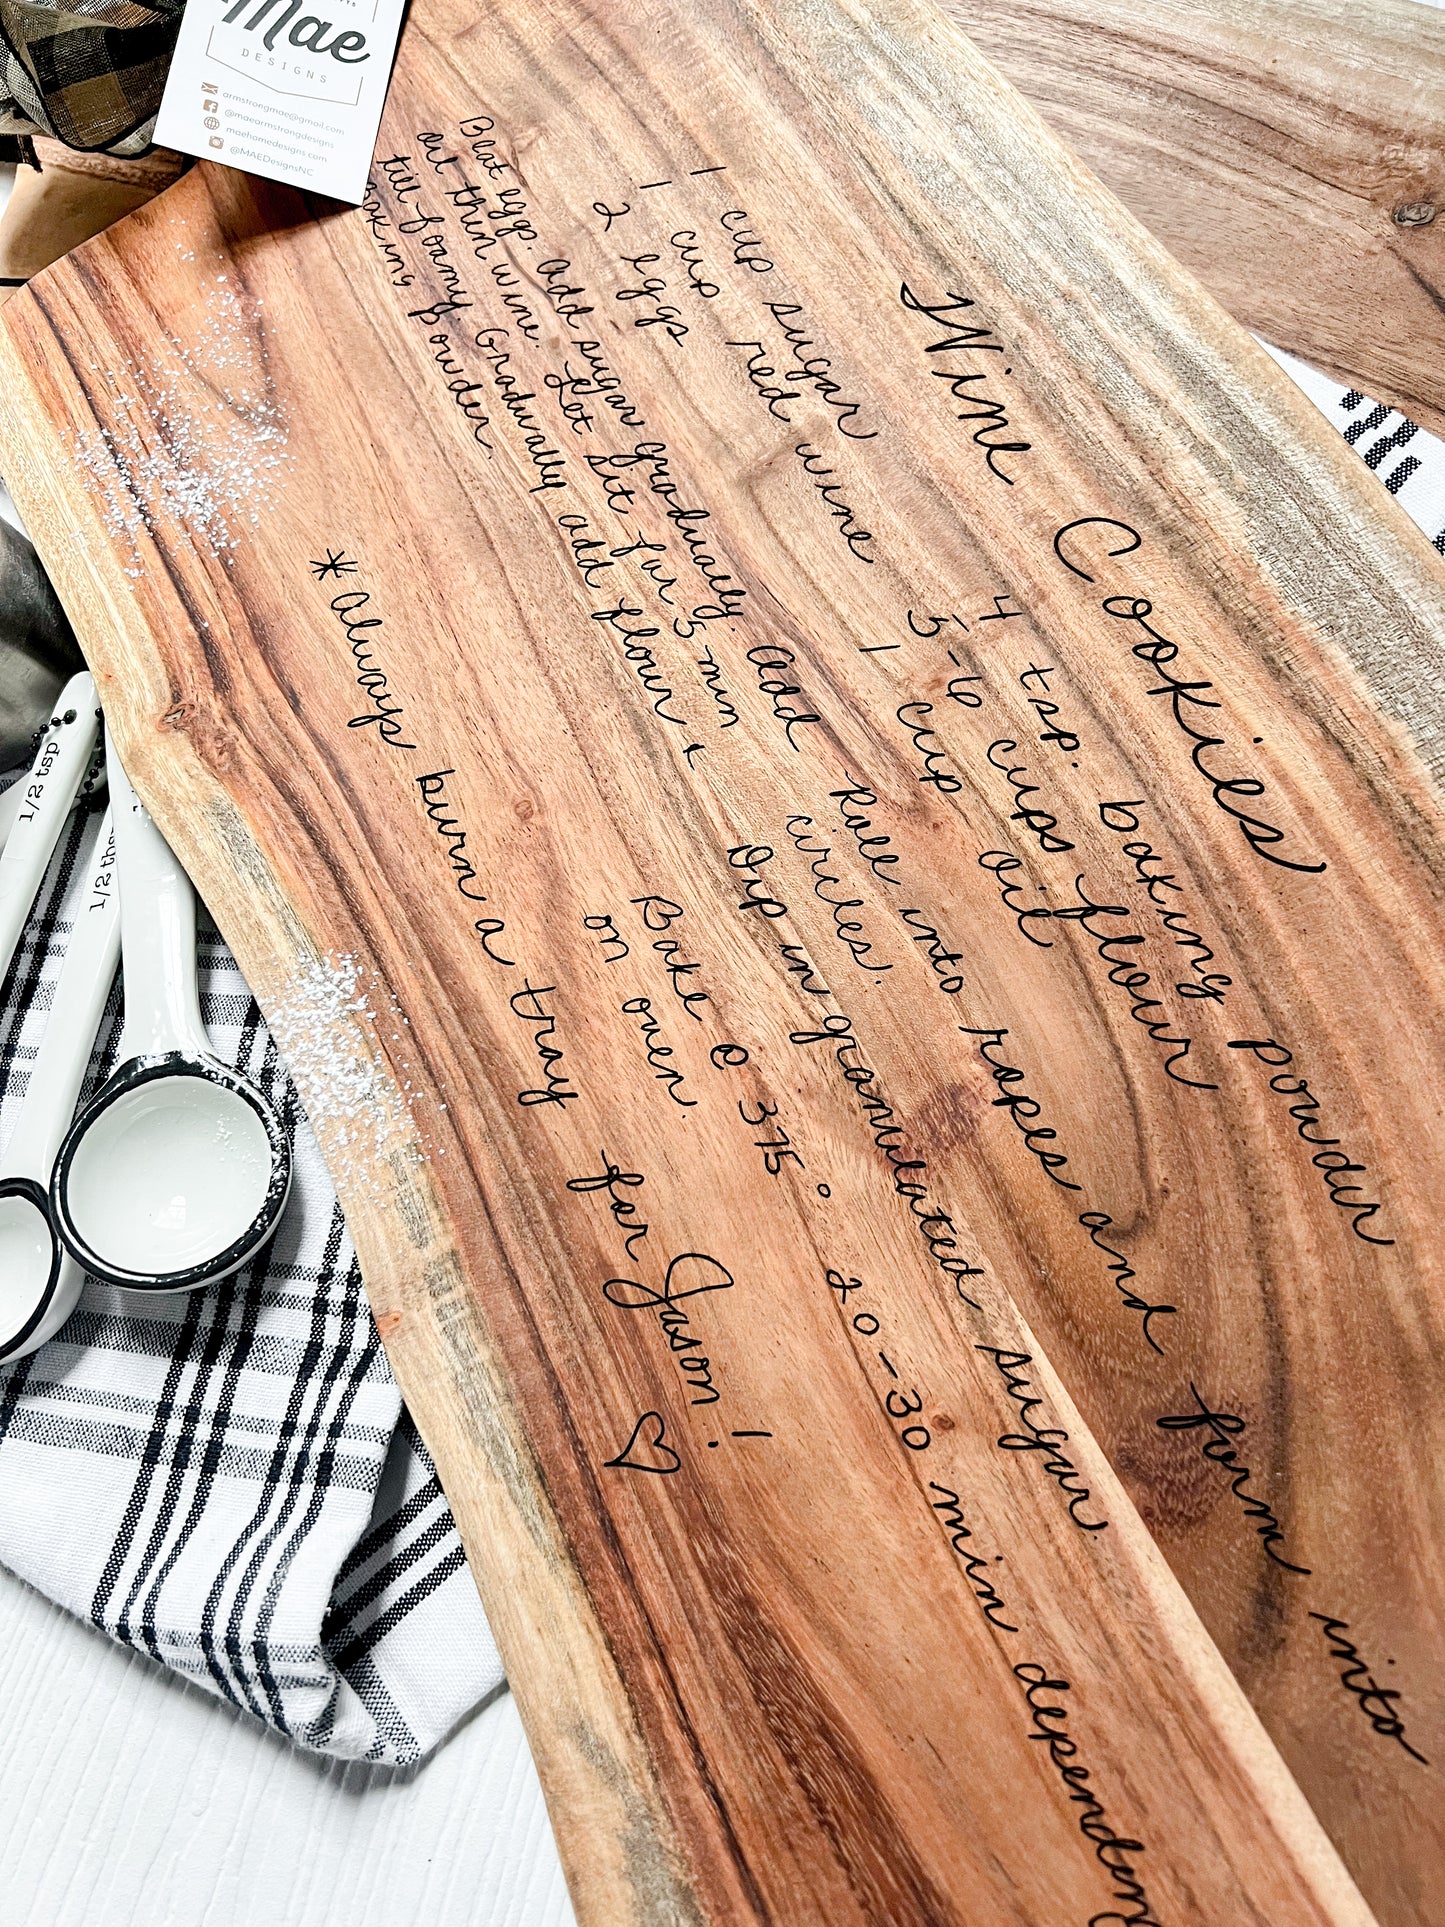 Mae
DESIGNS
armstrongmae@gmail.com
@maearmstrongdesigns
maehomedesigns.com
@MAEDesignsNC
Wine Cookies
1 cup sugar
1 cup red wine
2 eggs
4 tsp. baking powder
5-6 cups flour
1 cup oil
Beat eggs. Add sugar gradually. Add
oil then wine. Let sit for 5 min
till foamy. Gradually add flour +
baking powder.
Roll into ropes and form into
circles.
Dip in granulated sugar.
Bake @ 375° 20-30 min
on oven.
*Always burn a tray for Jason!
1/2 tsp
1/2